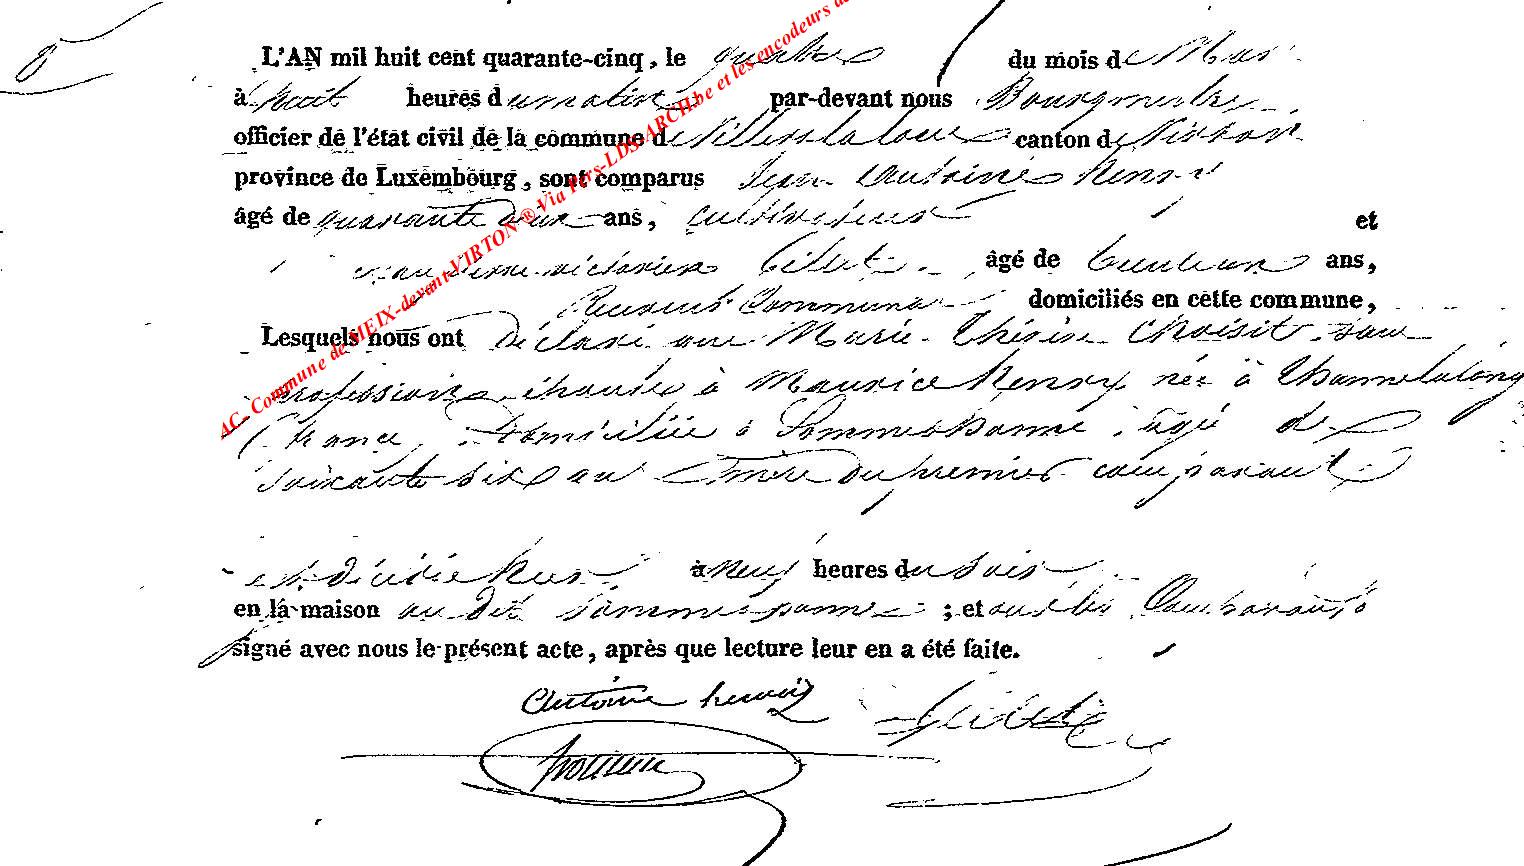 8
L'AN mil huit cent quarante-cinq, le quatre du mois de Mars
à huit heures du matin par-devant nous Bourgmestre
officier de l'état civil de la commune de Villers la loue canton de Virton
province de Luxembourg, sont comparus Jean Antoine Henry
âgé de quarante deux ans, cultivateur et
Gillet âgé de trente un ans,
Communal domiciliés en cette commune,
Lesquels nous ont déclaré que Marie Thérèse Choisit sans
profession épouse à Maurice Henry née à Thonnelalong
France, domiciliée à Sommethonne, agé de
soixante dix an mère du premier comparant
est décédée hier à neuf heures du soir
en la maison au dit Sommethonne ; et ont les Comparants
signé avec nous le présent acte, après que lecture leur en a été faite.
Antoine henry Gillet
AC- Commune de MEIX-devant-VIRTON ® Via Pers-LDS-ARCH.be et les encodeurs